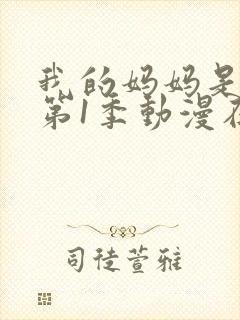 我的妈妈是
第1季動漫在
司徒萱雅